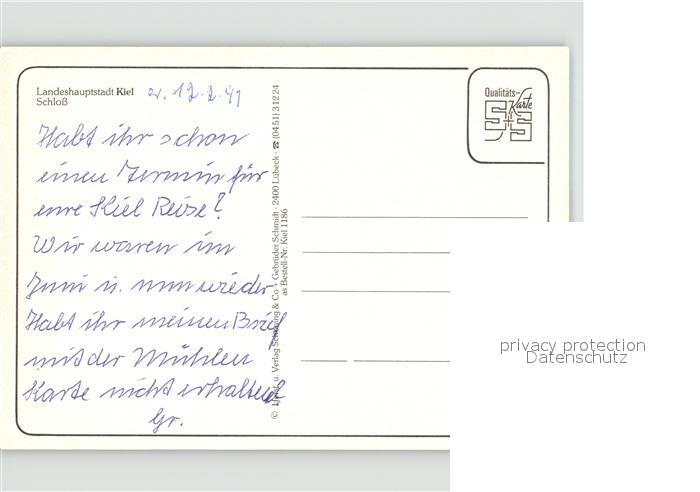 Landeshauptstadt Kiel
Schloß
12.2.91
Habt ihr schon
einen Termin für
eure Kiel Reise?
Wir waren im
Juni u. nun wieder
Habt ihr meinen Brief
mit der Mühlen
Karte nicht erhalten
Gr.
© Verlag Schöning & Co + Gebrüder Schmidt · 2400 Lübeck · ☎ (0451) 31224
as Bestell-Nr. Kiel 1186
Qualitäts-
Karte
S+S
privacy protection
Datenschutz